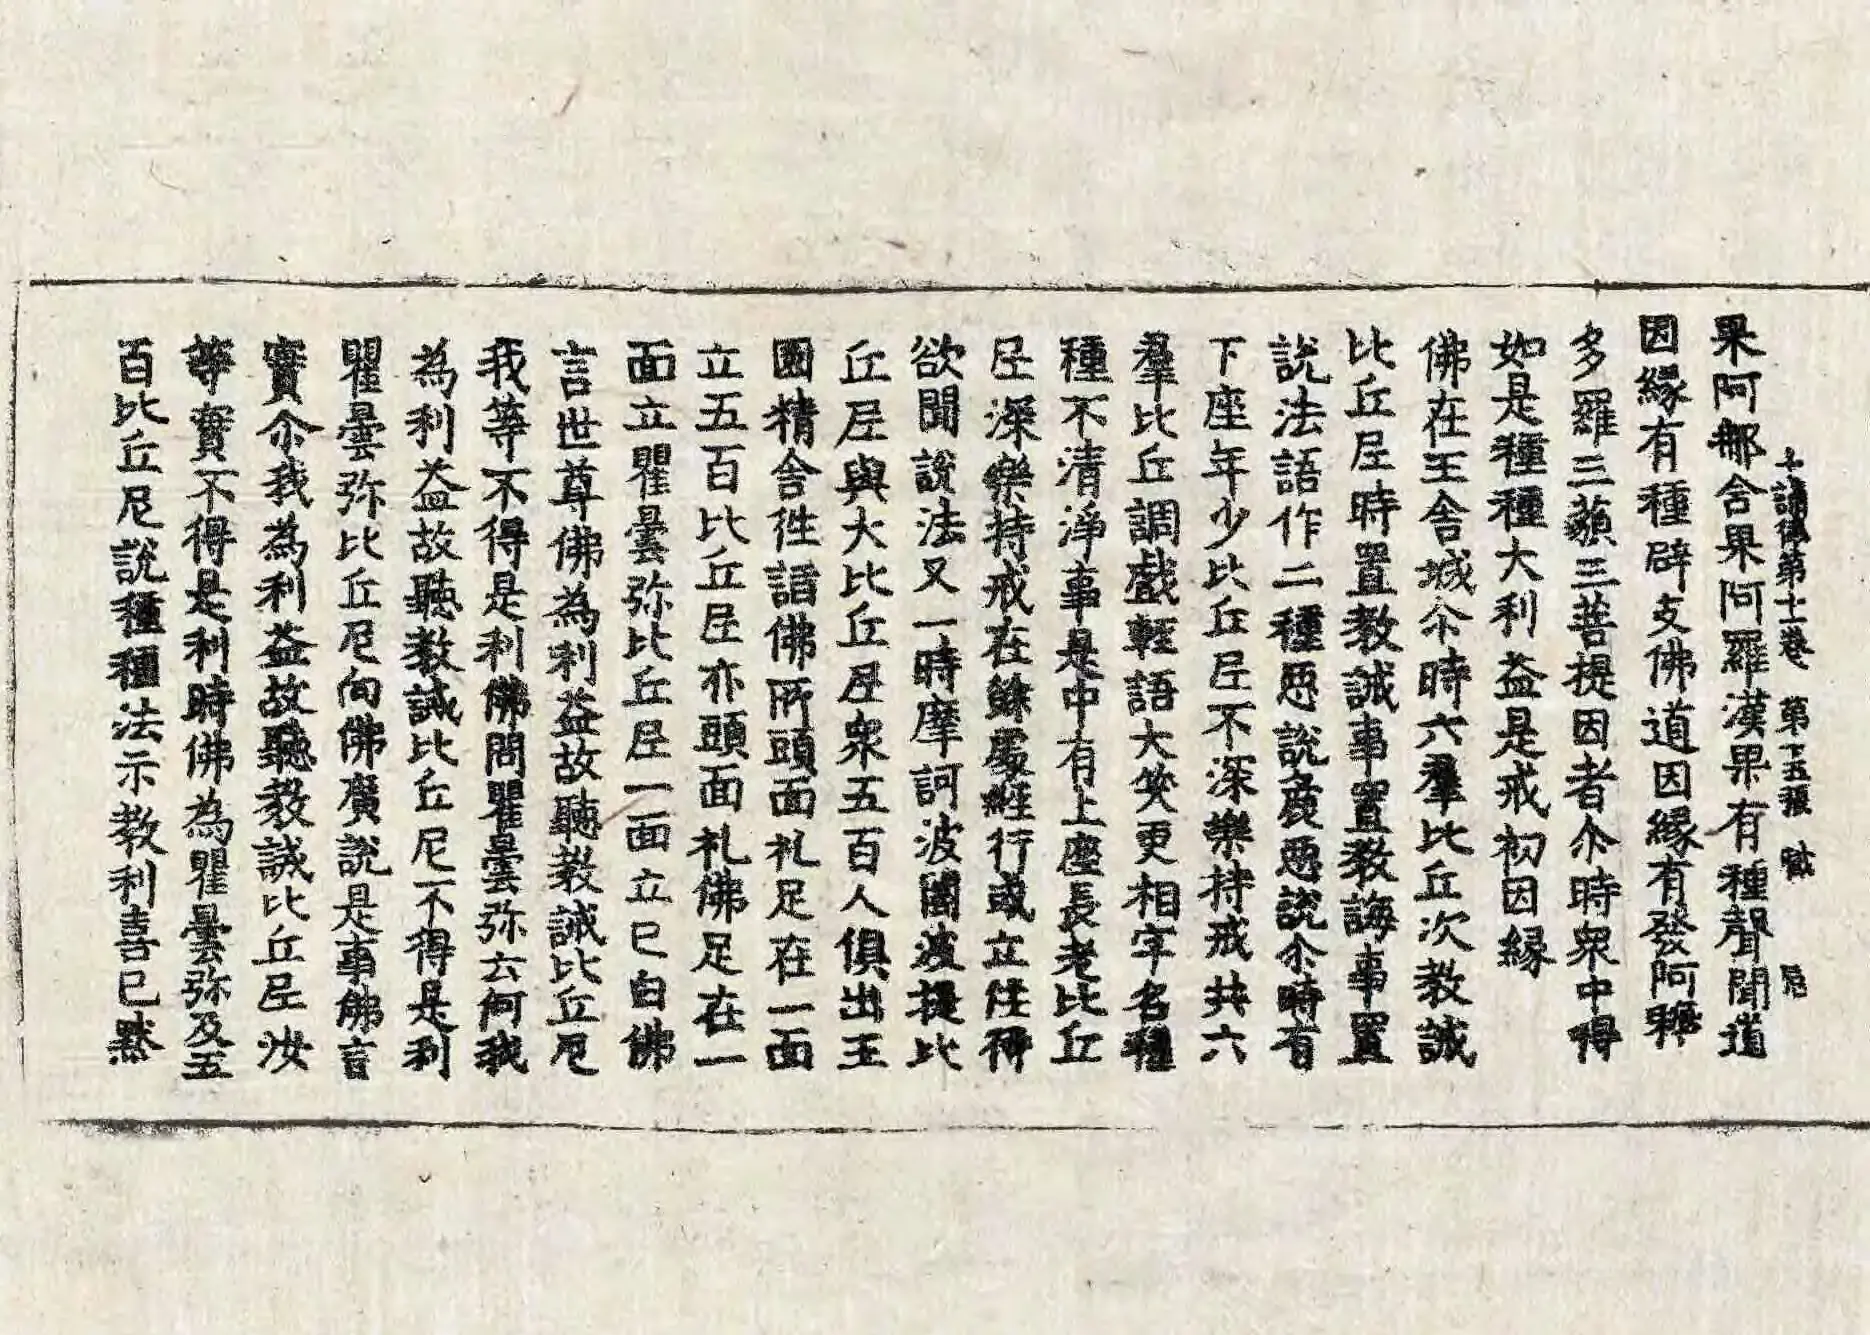 果阿那含果阿羅漢果有種聲聞道
十誦律第十一卷 第十五張 尼
因緣有種辟支佛道因緣有發阿耨
多羅三藐三菩提因者尒時衆中得
如是種種大利益是戒初因緣
佛在王舍城尒時六羣比丘次教誡
比丘尼時置教誡事置教誨事置
說法語作二種惡說麁惡說尒時有
下座年少比丘尼不深樂持戒共六
羣比丘調戲輕語大笑更相字名種
種不清淨事是中有上座長老比丘
尼深樂持戒在餘處經行或立住待
欲聞說法又一時摩訶波闍波提比
丘尼與大比丘尼衆五百人俱出王
園精舍徃詣佛所頭面礼足在一面
立五百比丘尼亦頭面礼佛足在一
面立瞿曇弥比丘尼一面立已白佛
言世尊佛為利益故聽教誡比丘尼
我等不得是利佛問瞿曇弥云何我
為利益故聽教誡比丘尼不得是利
瞿曇弥比丘尼向佛廣說是事佛言
實尒我為利益故聽教誡比丘尼汝
等實不得是利時佛為瞿曇弥及五
百比丘尼說種種法示教利喜已黙